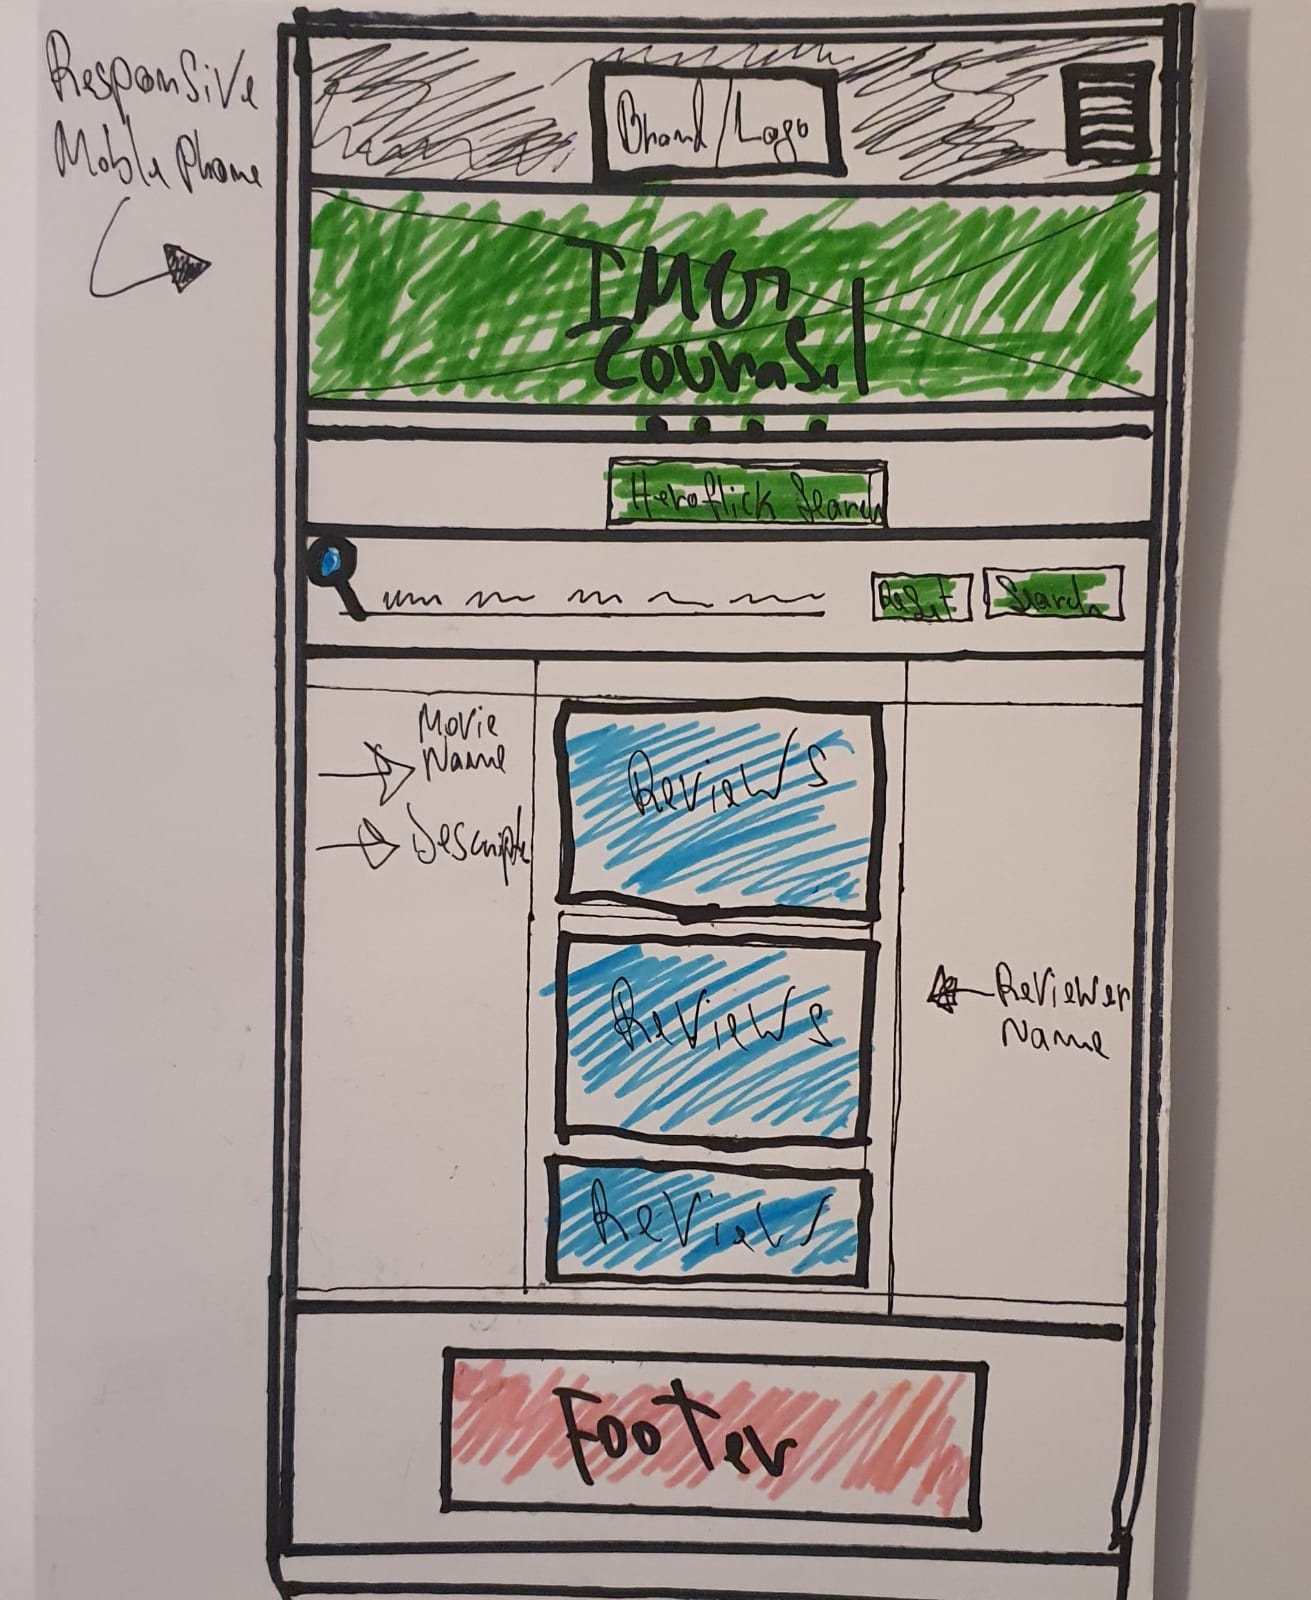 Responsive
Mobile Phone
Brand/Logo
IMG
Courasel
Heroflick Search
Reset
Search
Movie
Name
Reviews
Descripte
Reviews
Reviewer
Name
Reviews
Footer